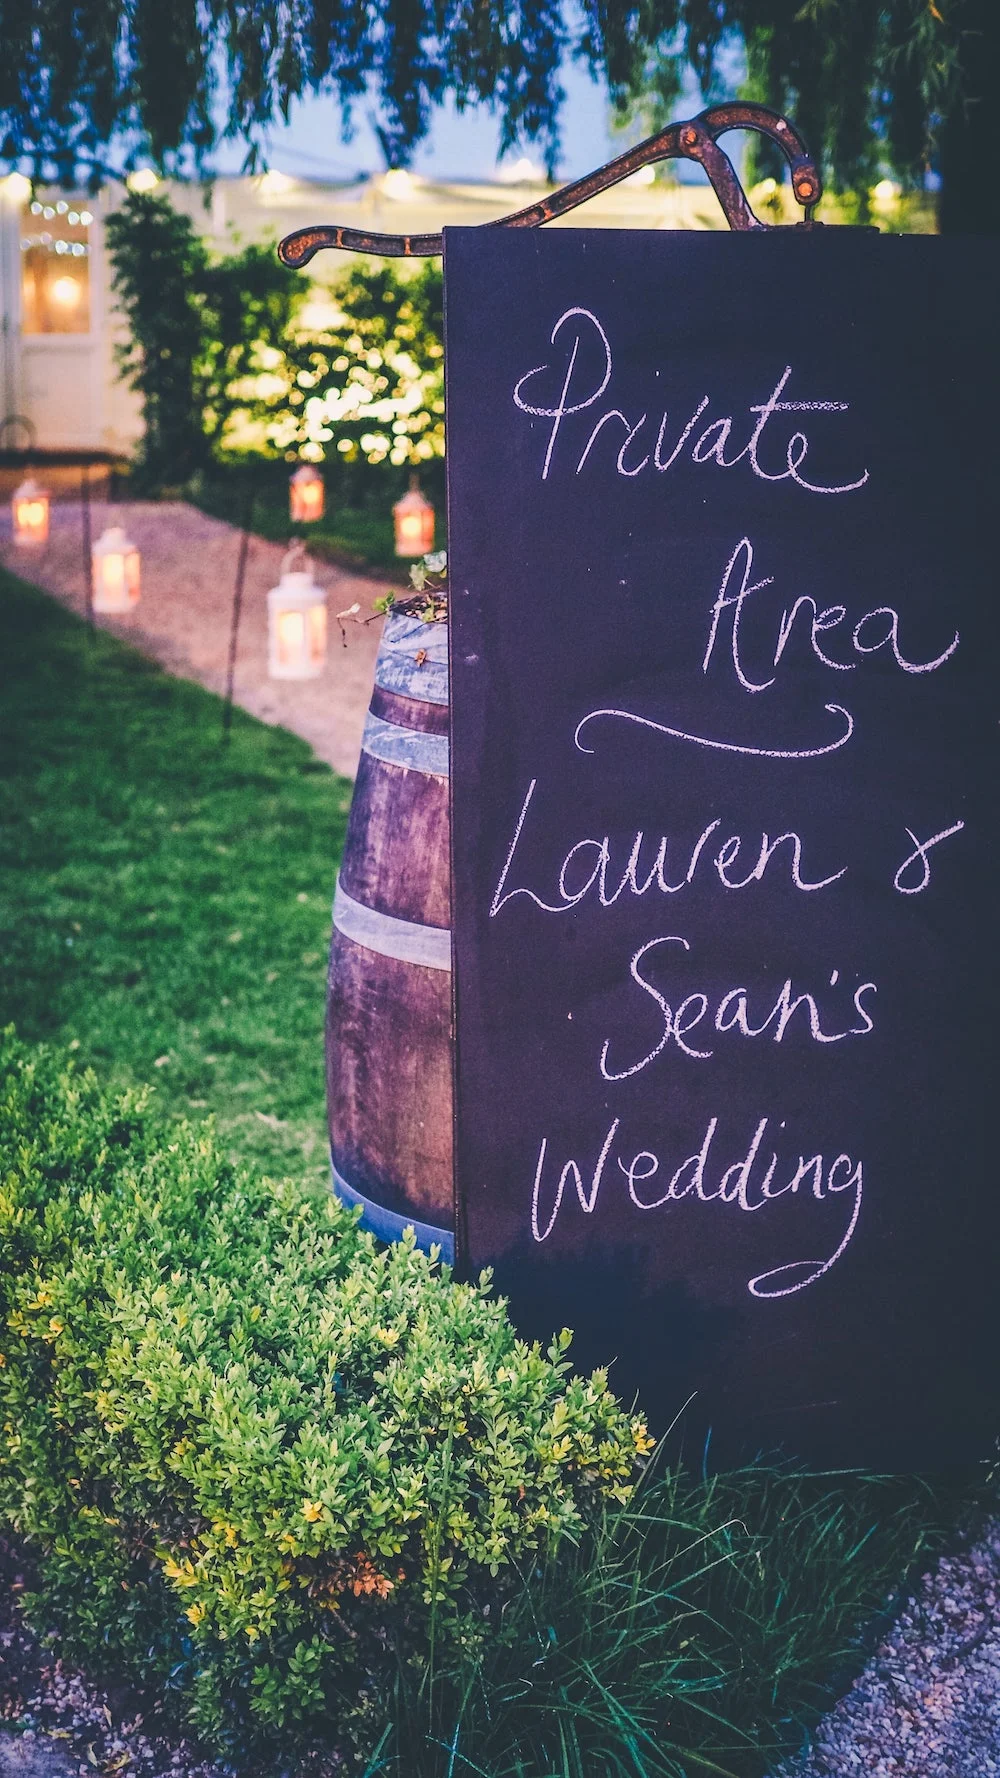 Private
Area
Lauren &
Sean's
Wedding